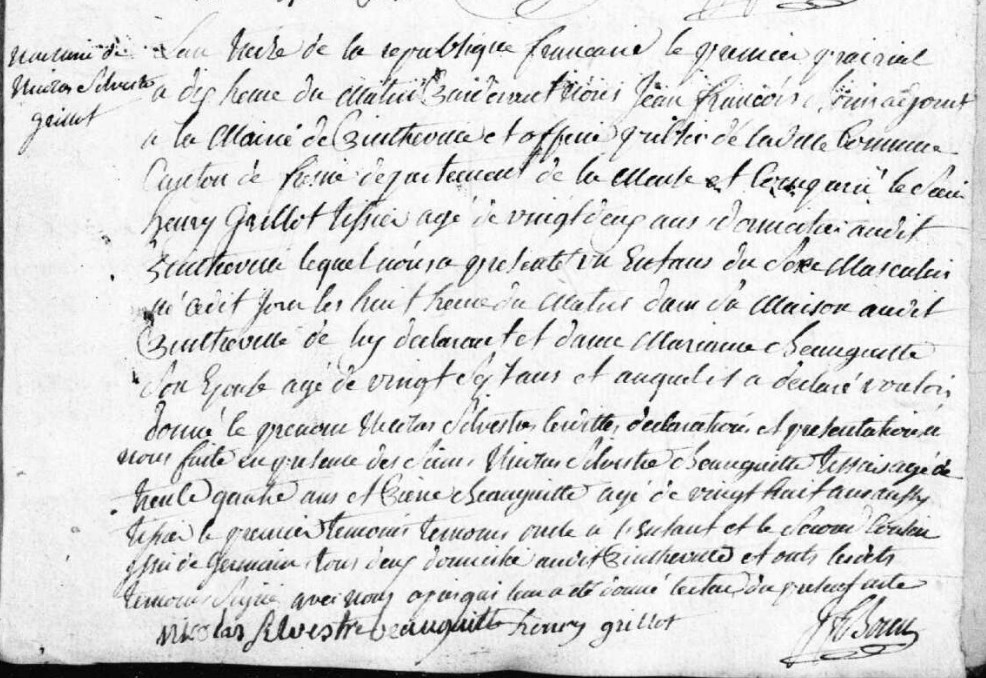 naissance de
Nicolas Silvestre
grillot
L'an treize de la republique francaise le premier prairial
a dix heure du matin pardevant nous Jean françois adjoint
a la Mairie de et officier public de ladite Commune
Canton de departement de la Meuse est Comparu le Sieur
henry Grillot tissier agé de vingt deux ans domicilié audit
lequel nous a presenté un Enfans du Sexe Masculin
né cedit jour les huit heure du Matin dans Sa Maison audit
de luy declarant et dame Marianne Beauguitte
Son Epouse agé de vingt Sept ans et auquel il a declaré vouloir
donné le prenom Nicolas Silvestre lesdittes declarations et presentations a
nous faite en presence des Sieurs Nicolas Silvestre Beauguitte tissier agé de
trente quatre ans et Beauguitte agé de vingt huit ans aussy
tissier le premier temoins oncle a l'Enfant et le Second Cousin
issu de Germain tous deux domicilié audit et onts lesdits
temoins Signé avec nous apres que leur a été donné lecture du present acte
nicolas silvestre beauguitte henry grillot